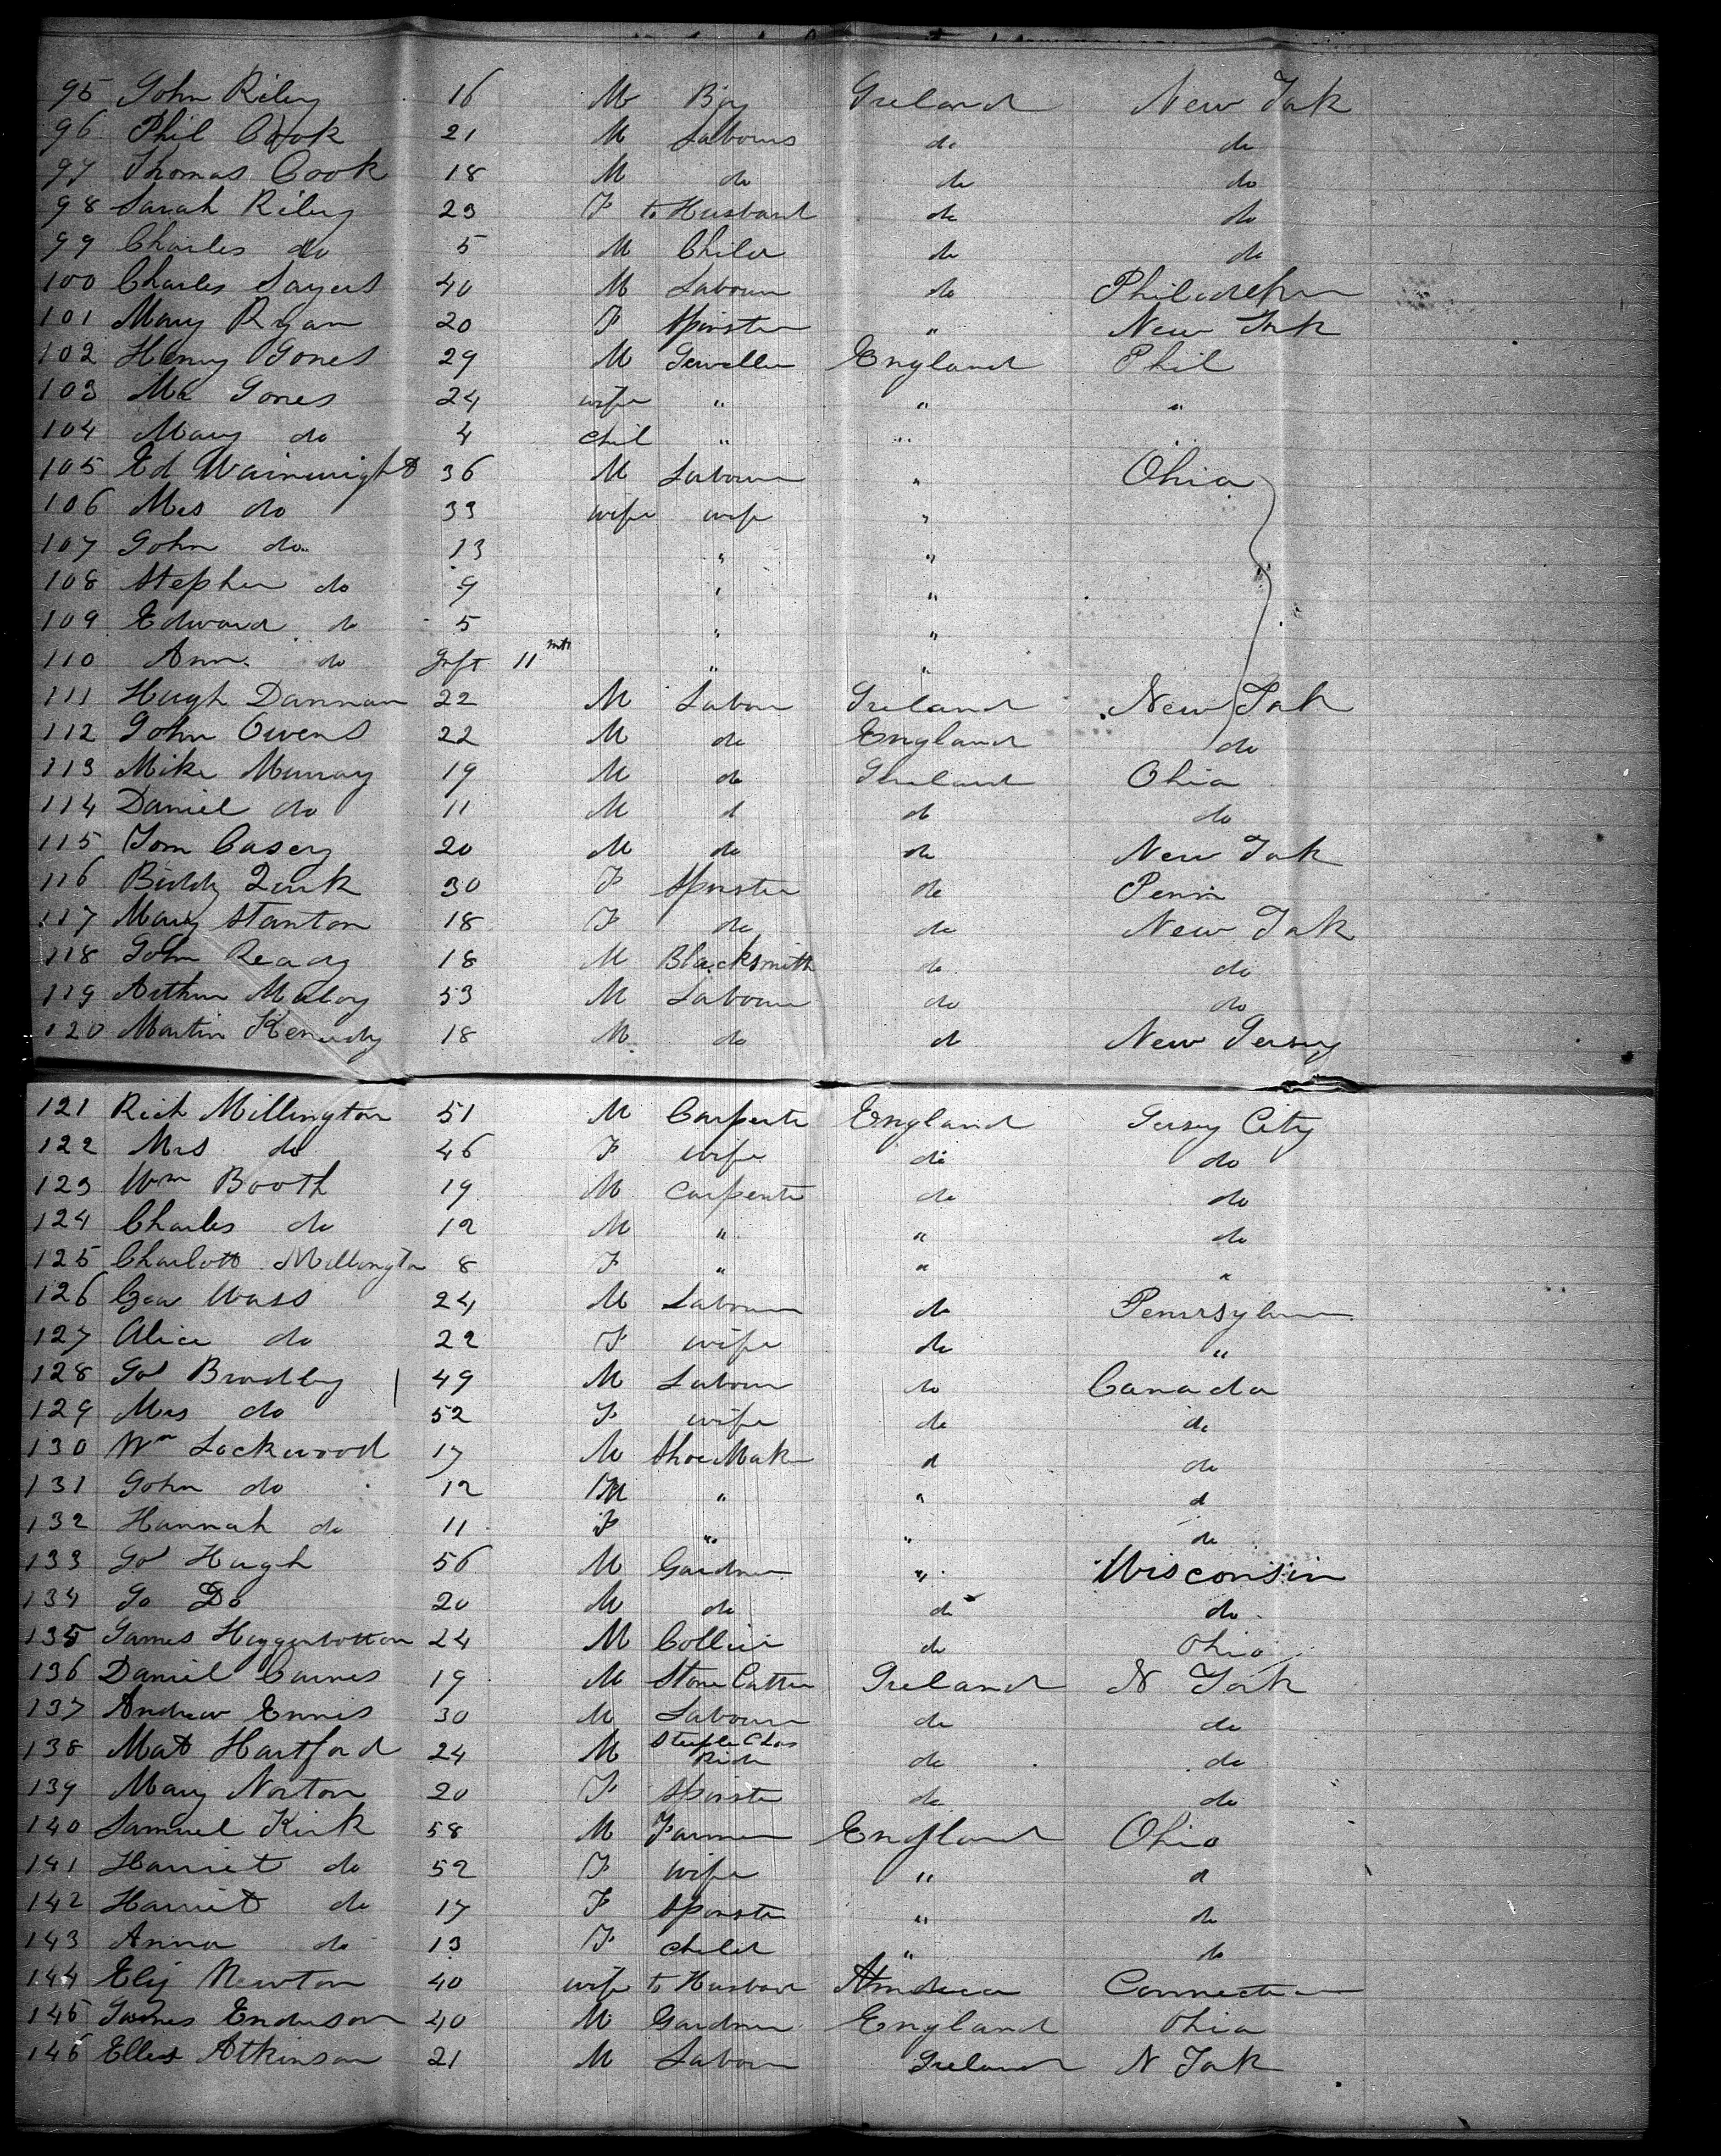 95 John Riley 16 M Boy Ireland New York
96 Phil Cook 21 M Labours do do
97 Thomas Cook 18 M do do do
98 Sarah Riley 23 F to Husband do do
99 Charles do 5 M Child do do
100 Charles Sayers 40 M Labour do Philadelphia
101 Mary Ryan 20 F Spinster " New York
102 Henry Jones 29 M Jeweller England Phil
103 Mr Jones 24 wife " " "
104 Mary do 4 Chil " " "
105 Ed Wainwright 36 M Labour " Ohio
106 Mrs do 33 wife wife "
107 John do 13 " "
108 Stephen do 9 " "
109 Edward do 5 " "
110 Ann do Inft 11 mth " "
111 Hugh Dannan 22 M Labour Ireland New York
112 John Owens 22 M do England do
113 Mike Murray 19 M do Ireland Ohio
114 Daniel do 11 M d do do
115 Tom Casey 20 M do do New York
116 Biddy Quirk 30 F Spinster do Penn
117 Mary Stanton 18 F do do New York
118 John Ready 18 M Blacksmith do do
119 Arthur Maloy 53 M Labour do do
120 Martin Kenedy 18 M do do New Jersey
121 Rich Millington 51 M Carpente England Jersey City
122 Mrs do 46 F wife do do
123 Wm Booth 19 M Carpente do do
124 Charles do 12 M " " do
125 Charlott Millington 8 F " " "
126 Geo Wass 24 M Labour do Pennsylvan
127 Alice do 22 F wife do "
128 Jos Bradley 49 M Labour do Canada
129 Mrs do 52 F wife do do
130 Wm Lockwood 17 M Shoe Mak d do
131 John do 12 M " " d
132 Hannah do 11 F " " do
133 Jos Hugh 56 M Gardner " Wisconsin
134 Jo Do 20 M do do do
135 James Higgenbottom 24 M Collier do Ohio
136 Daniel Carnes 19 M Stone Cutter Ireland N York
137 Andrew Ennis 30 M Labour do do
138 Mat Hartford 24 M Steeple Chas Ride do do
139 Mary Norton 20 F Spinste do do
140 Samuel Kirk 58 M Farmer England Ohio
141 Harriet do 52 F wife " d
142 Harriet do 17 F Spinste " do
143 Anna do 13 F child " do
144 Eliz Newton 40 wife to Husband America Connecti
145 James Enderson 40 M Gardner England Ohio
146 Ellis Atkinson 21 M Labour Ireland N York